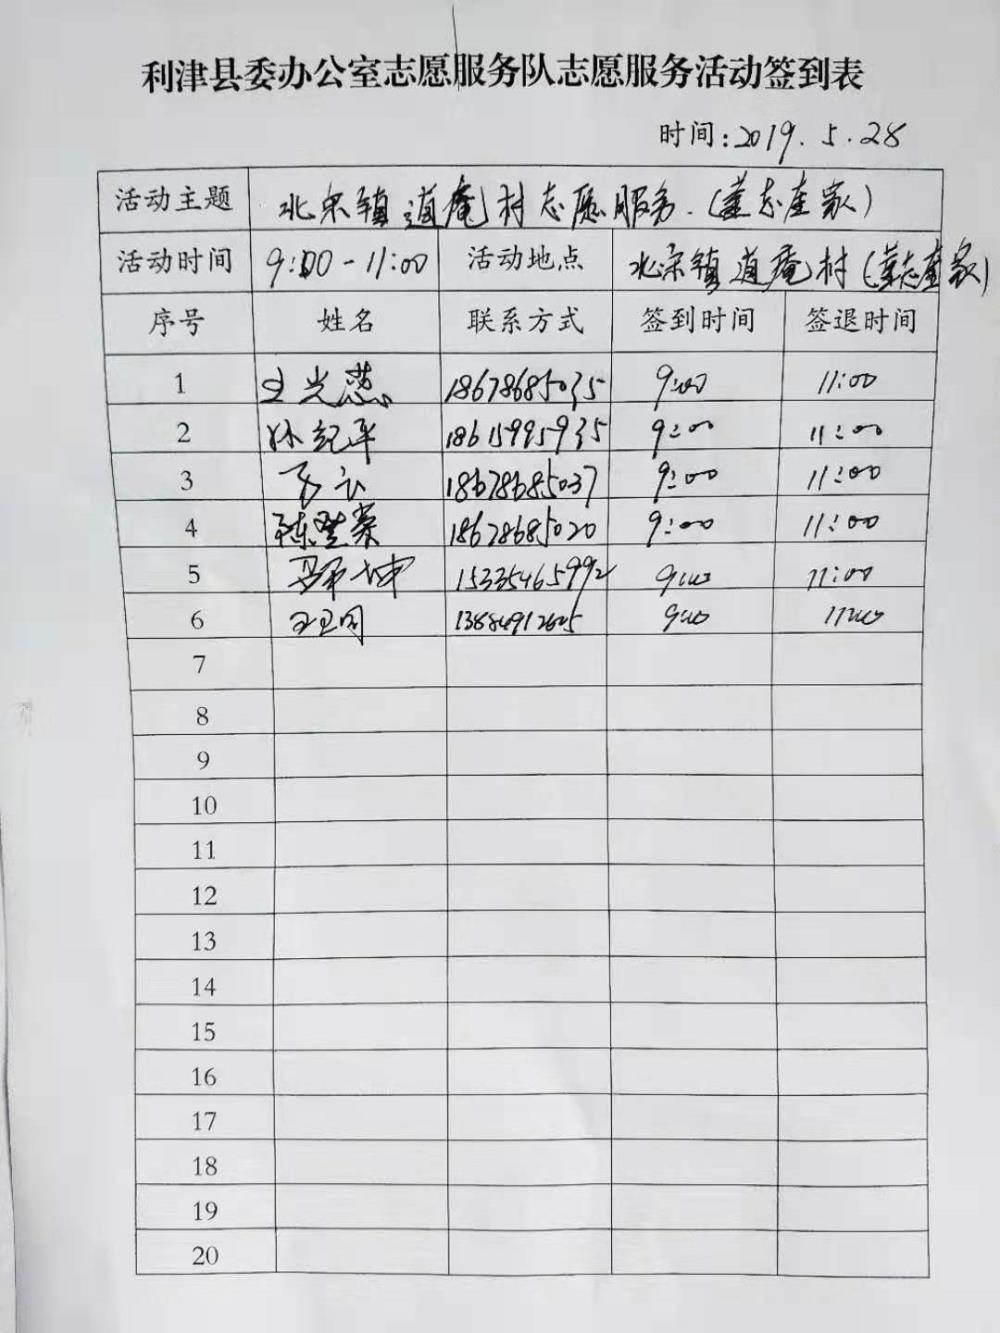 利津县委办公室志愿服务队志愿服务活动签到表
时间:2019.5.28
活动主题 北宋镇道庵村志愿服务.(董志奎家)
活动时间 9:00-11:00 活动地点 北宋镇道庵村(董志奎家)
序号 姓名 联系方式 签到时间 签退时间
1 王光燕 18678685035 9:00 11:00
2 孙纪平 18615995935 9:00 11:00
3 18678685037 9:00 11:00
4 陈登秦 18678685020 9:00 11:00
5 坤 15335465992 9:00 11:00
6 王卫国 9:00 11:00
7
8
9
10
11
12
13
14
15
16
17
18
19
20